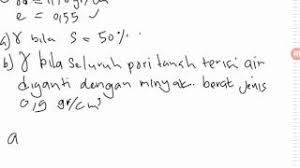 e = 0,55
a) γ bila S = 50%
b) γ bila seluruh pori tanah terisi air
diganti dengan minyak. berat jenis
0,9 gr/cm³
a